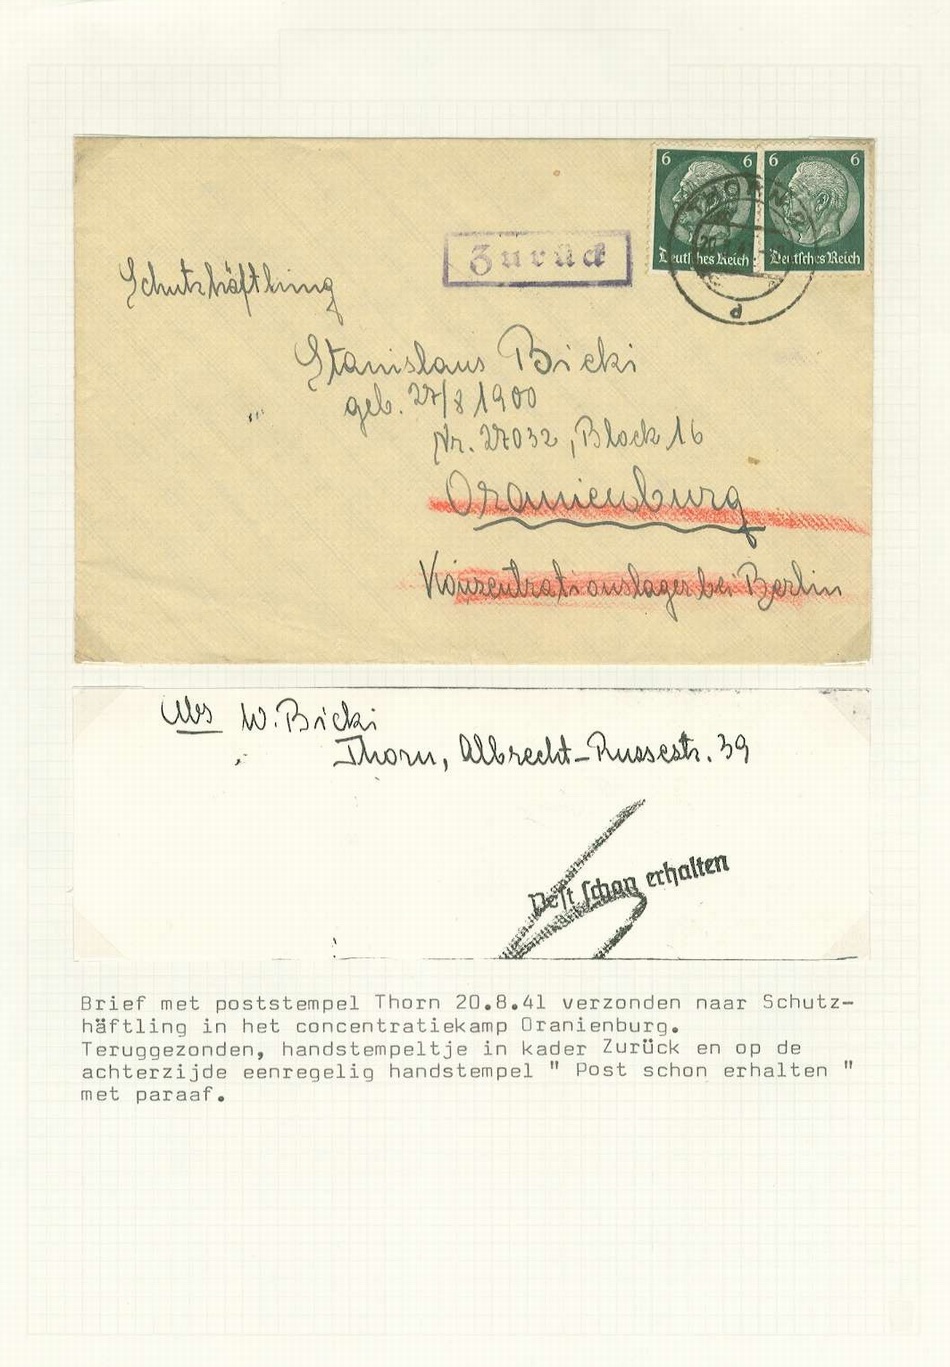 6 6 6 6
Deutsches Reich Deutsches Reich
THORN
d
Zurück
Schutzhäftling
Stanislaus Bicki
geb. 27/8 1900
Nr. 27032, Block 16
Oranienburg
Konzentrationslager bei Berlin
Abs W. Bicki
Thorn, Albrecht-Russestr. 39
Post schon erhalten
Brief met poststempel Thorn 20.8.41 verzonden naar Schutz-
häftling in het concentratiekamp Oranienburg.
Teruggezonden, handstempeltje in kader Zurück en op de
achterzijde eenregelig handstempel " Post schon erhalten "
met paraaf.